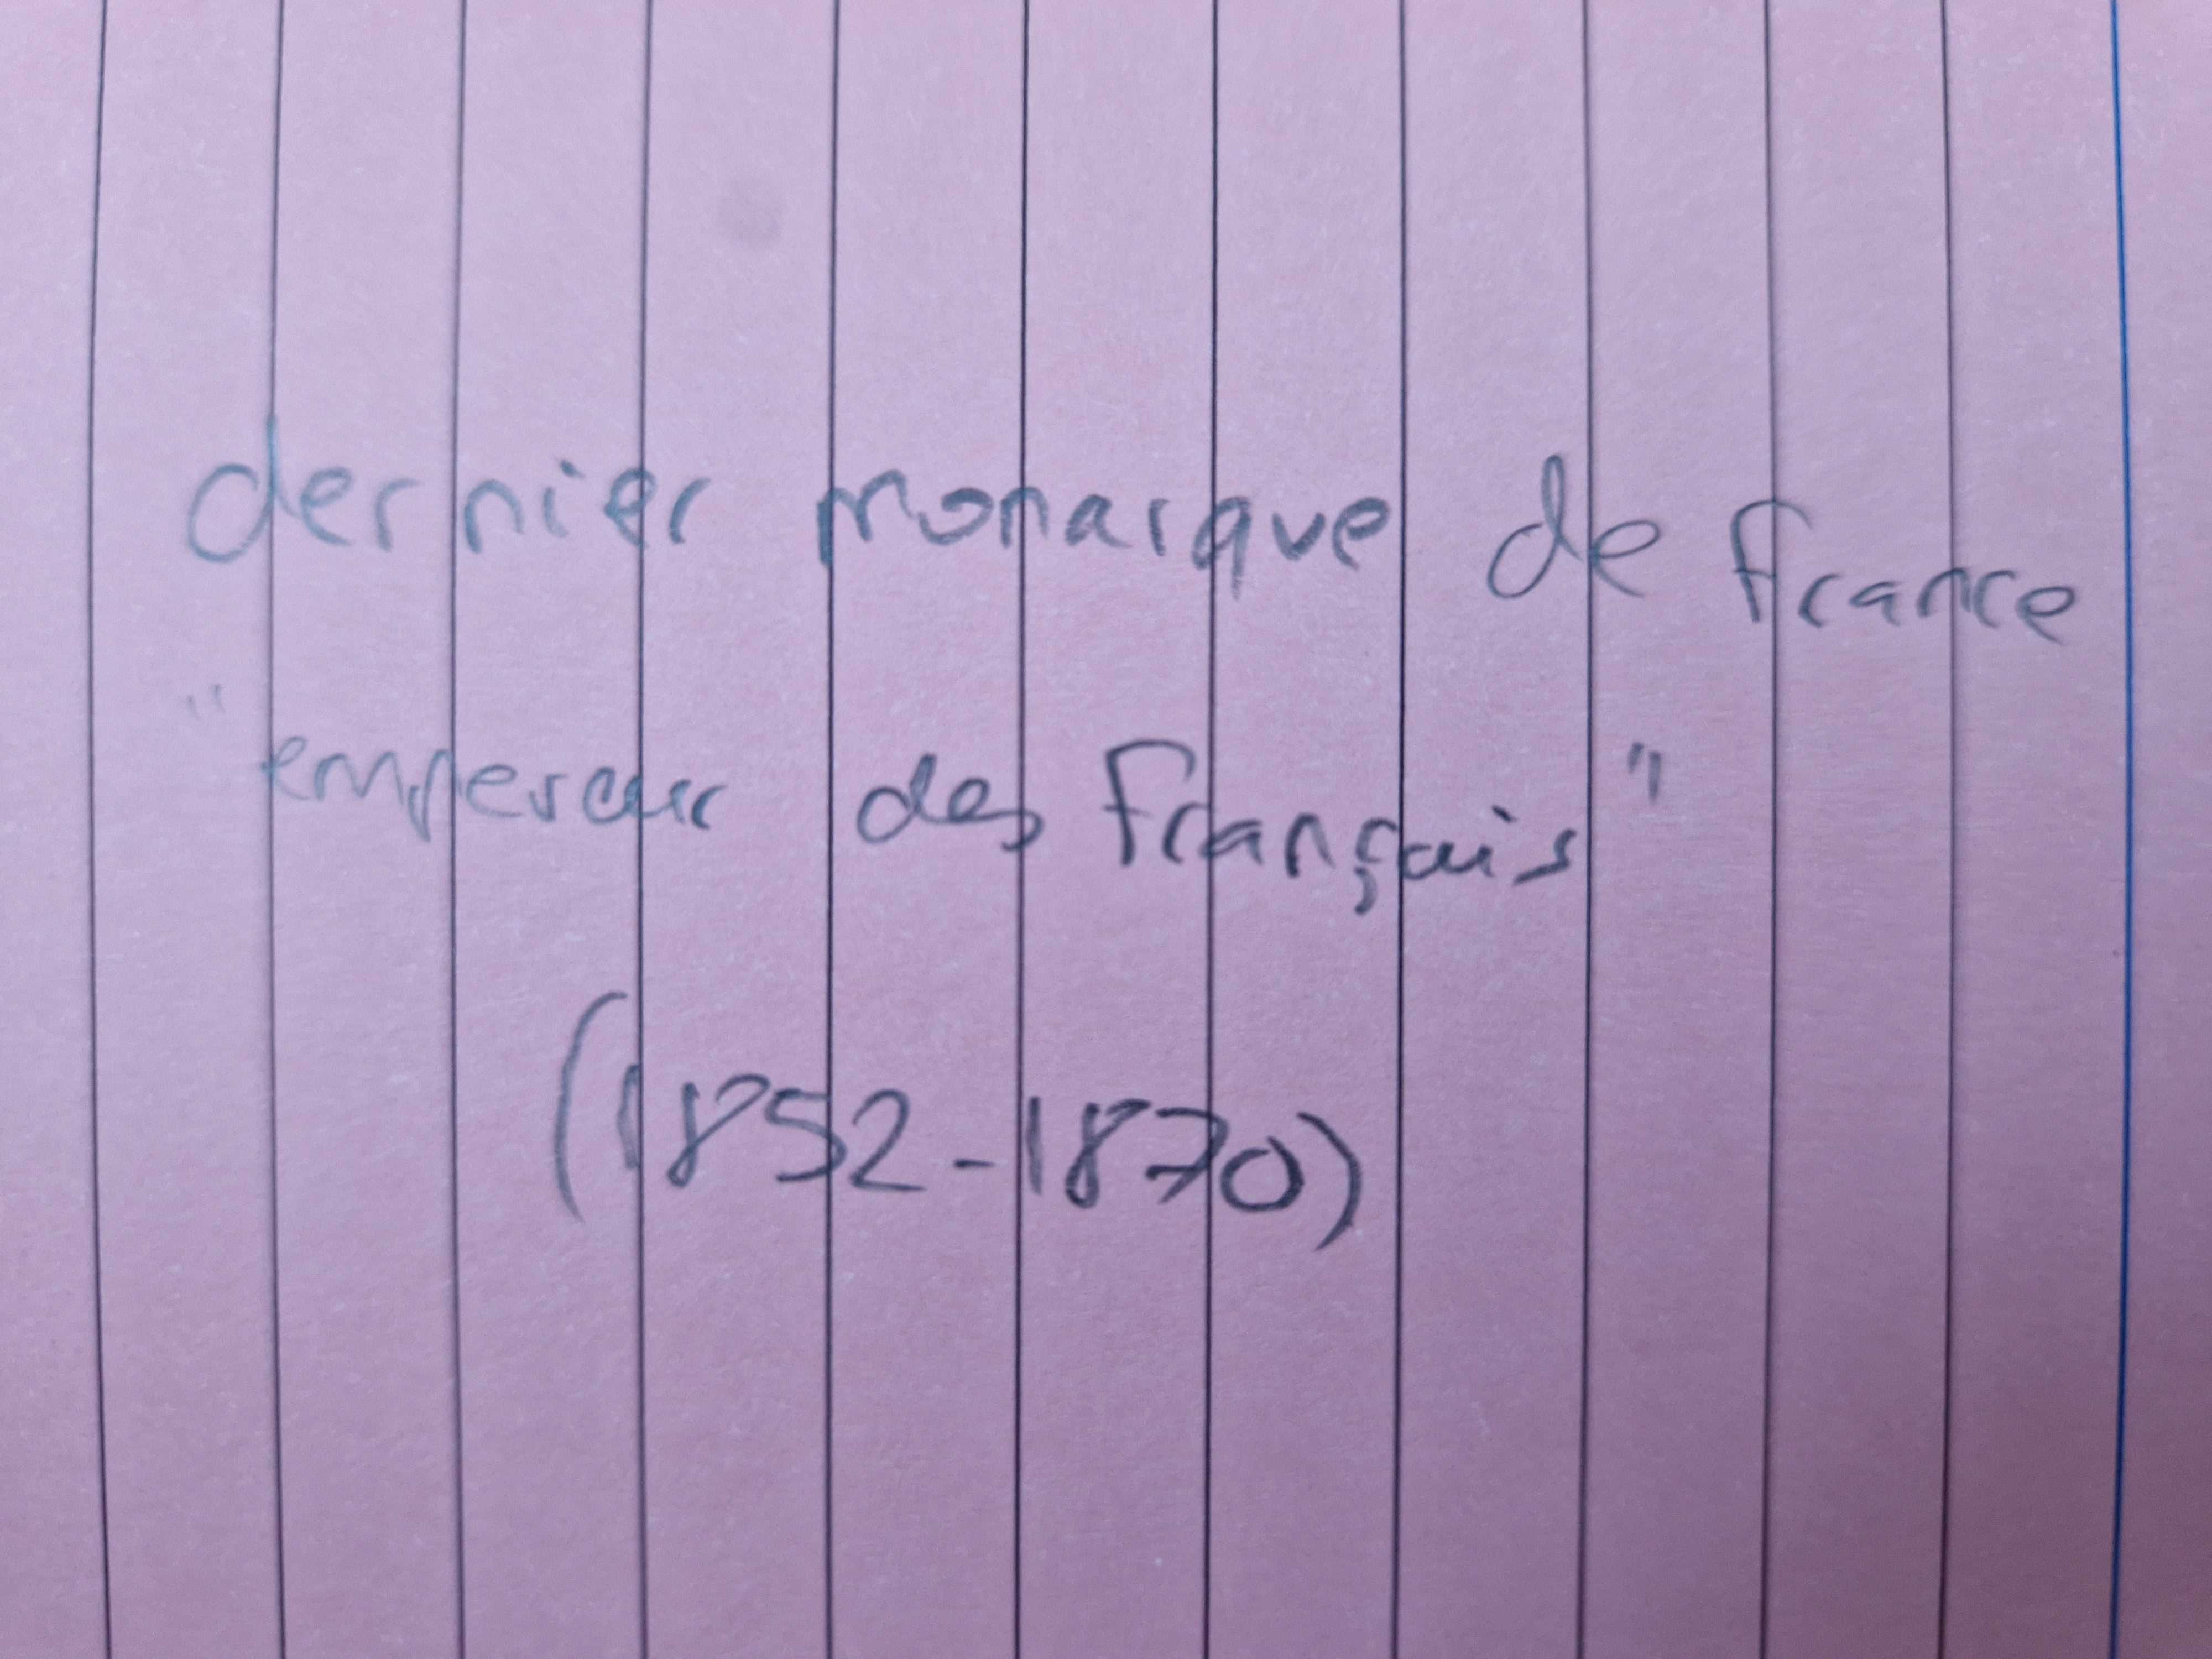 dernier monarque de france
"empereur des français"
(1852-1870)